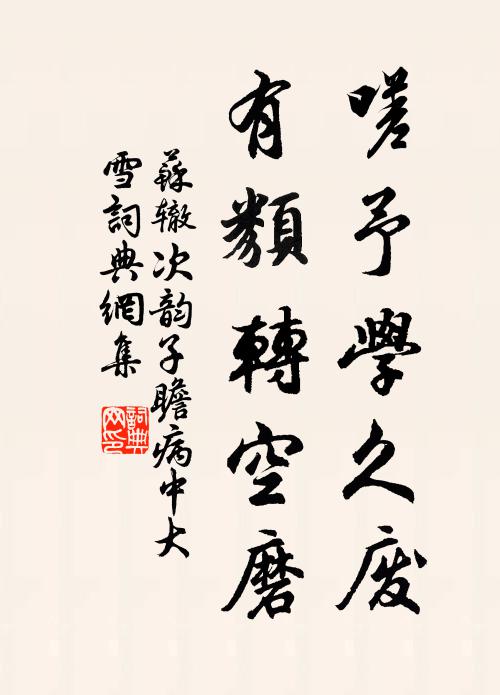 嗟予學久廢
有類轉空磨
蘇辙次韵子瞻病中大
雪詞典網集
詞典
网印